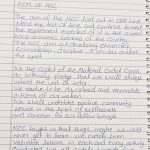 AIM OF NCC
The aim of the NCC laid out in 1988 have
stood the test of time and continue to meet
the requirements expected of it in the current
socio economic scenario of the country.
The NCC aims at developing character,
Comradeship, discipline, a secular outlook
the spirit
We the Cadet of the National Cadet Corps
do solemnly pledge that we shall always
uphold the unity of India
We resolve to be disciplined and responsible
citizens of our nation
We shall undertake positive community
service in the spirit of selflessness
and concern for our fellow beings
NCC taught us that things maybe we will
never able to learn
valuable lessons in each and every